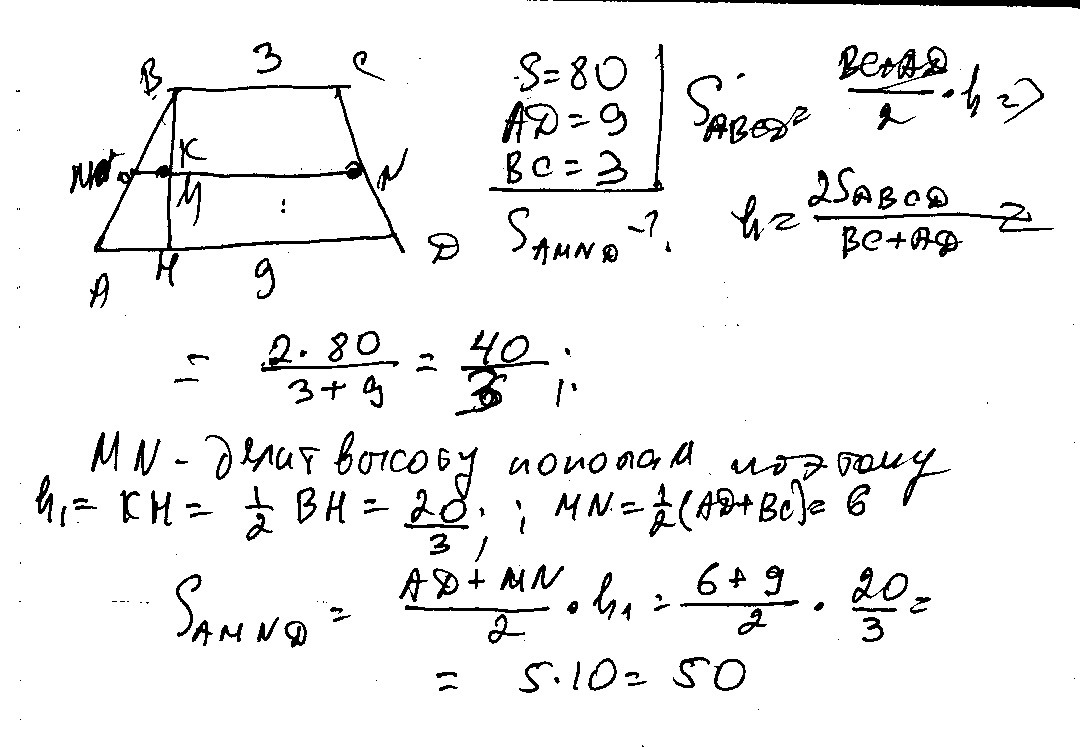 B 3 C
K N
M
A H 9 D
S=80
AD=9
BC=3
S_AMND -?
S_ABCD = (BC+AD)/2 · h =>
h = 2S_ABCD/(BC+AD) =
= (2·80)/(3+9) = 40/3;
MN - делит высоту пополам поэтому
h₁ = KH = 1/2 BH = 20/3; ; MN = 1/2(AD+BC) = 6
S_AMND = (AD+MN)/2 · h₁ = (6+9)/2 · 20/3 =
= 5·10 = 50